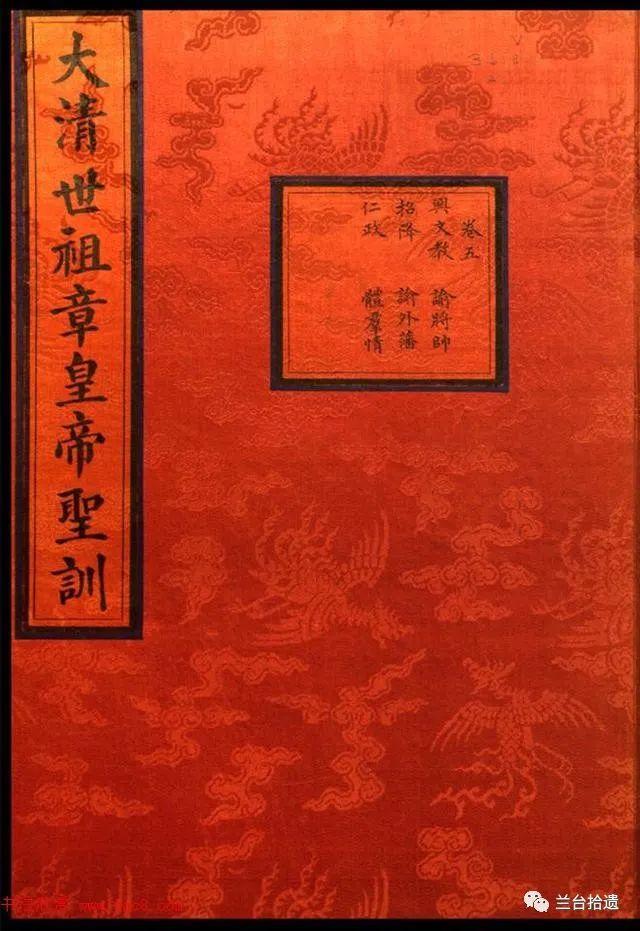 大清世祖章皇帝聖訓
卷五
興文教 諭將帥
招降 諭外藩
仁政 體羣情
兰台拾遗